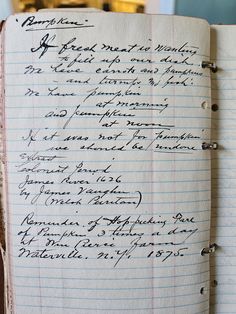 Pumpkin.
If fresh meat is Wanting
to fill up our dish.
We have carrots and pumpkins
and turnips & fish.
We have pumpkin
at morning
and pumpkin
at noon
If it was not for Pumpkin
we should be undone
Extract
Colonist Period
James River 1626
by James Vaughn
(Welsh Puritan)
Reminder of Hop-picking Fare
of Pumpkin 3 times a day
at Wm Pierce farm
Waterville. N.Y. 1875.